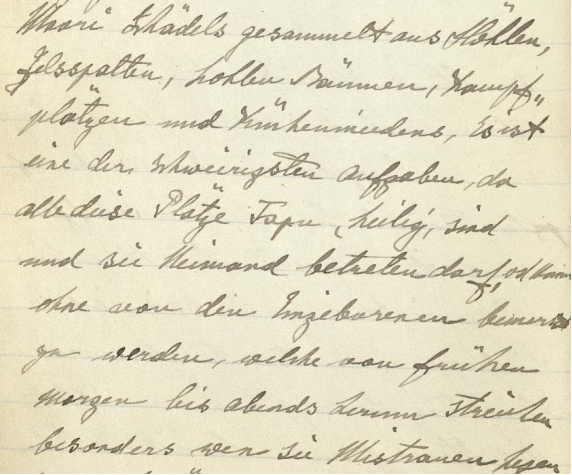 Maori Schädels gesammelt aus Höhlen,
Felsspalten, hohlen Bäumen, Kampf„
plätzen und Küchenmiedens, Es ist
eine der schwierigsten Aufgaben, da
alle diese Plätze Tapu (heilig) sind
und sie Niemand betreten darf, od kann
ohne von den Eingeborenen bemerkt
zu werden, welche von frühen
Morgen bis abends herum streichen
besonders wen sie Mistrauen hegen